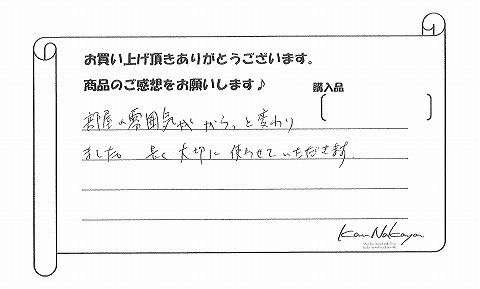 お買い上げ頂きありがとうございます。
商品のご感想をお願いします♪
購入品
部屋の雰囲気がガラっと変わり
ました。長く大切に使らせていただきます。